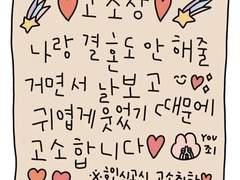 고소장
나랑 결혼도 안 해줄
거면서 날보고
귀엽게 웃었기 때문에
고소합니다
You
죄